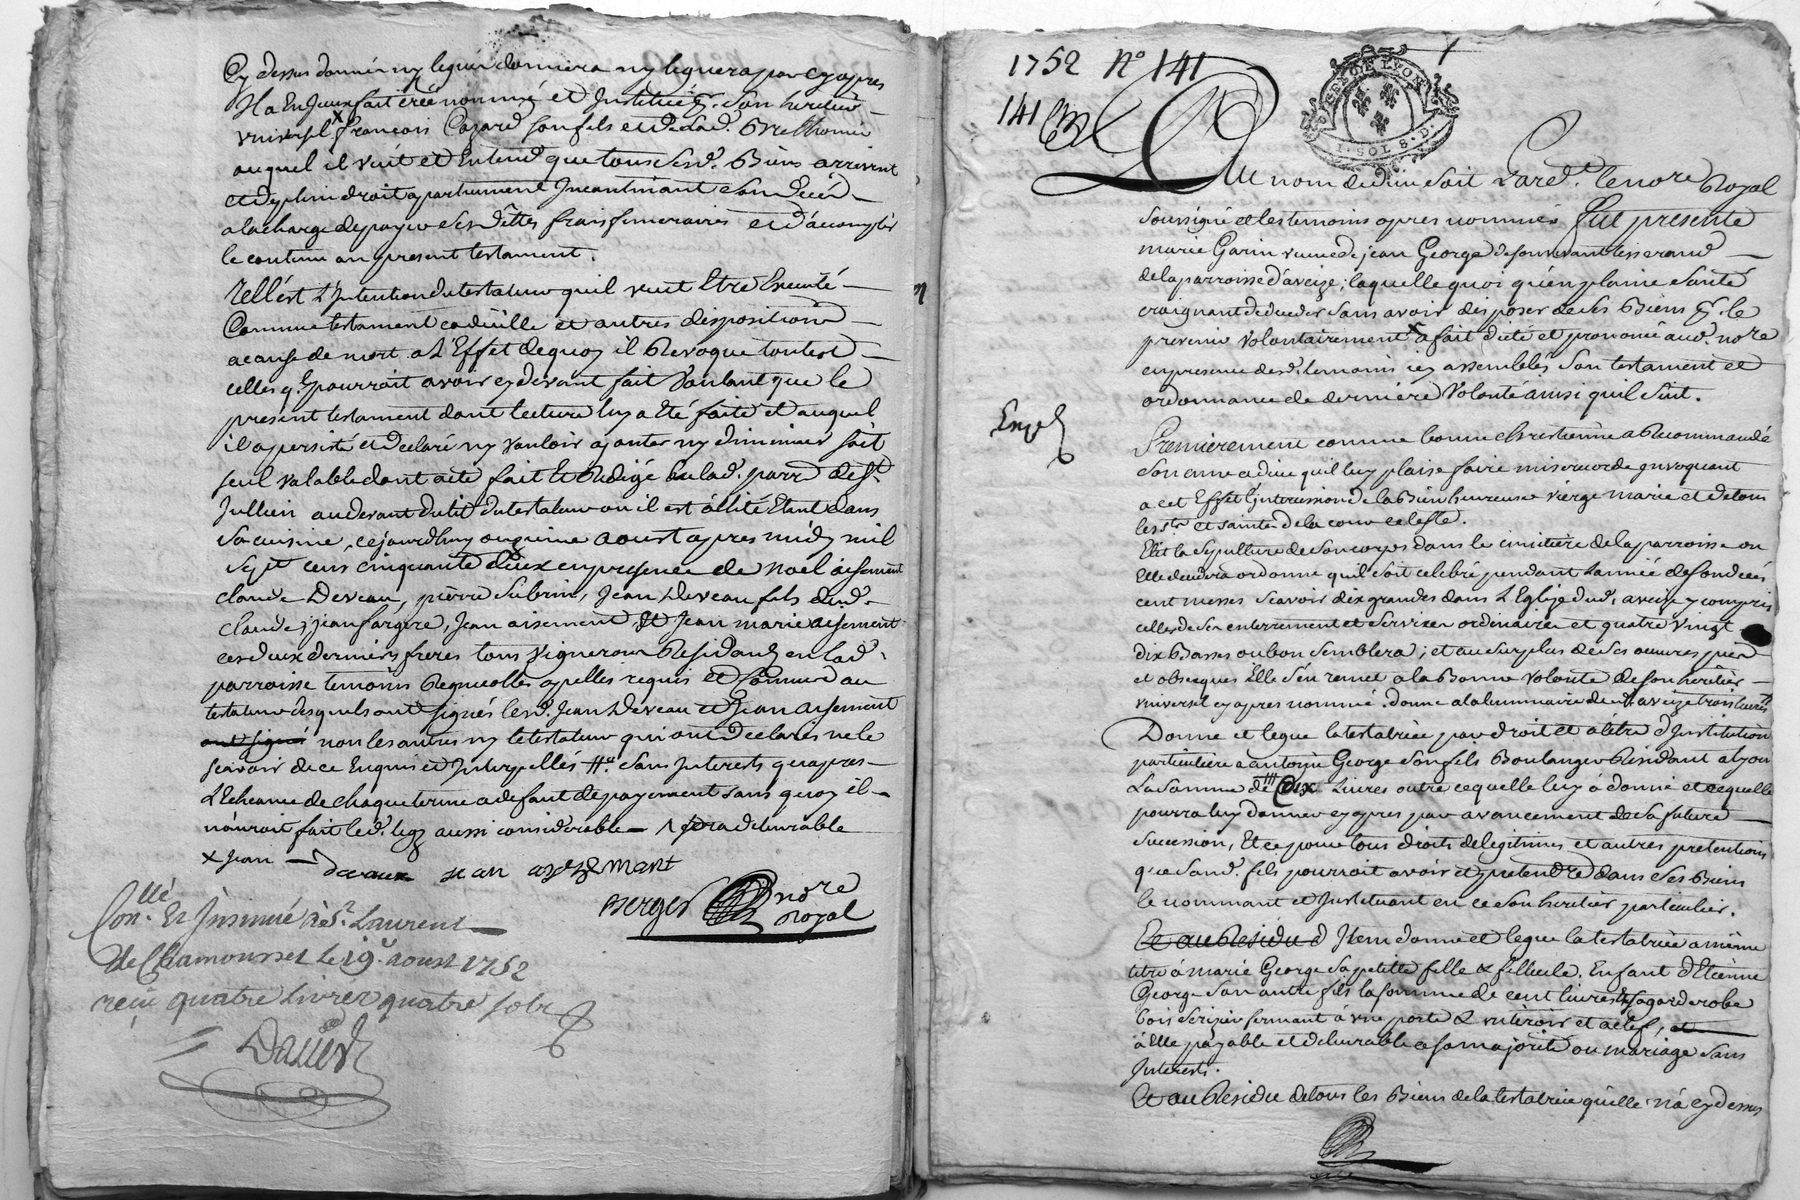 Cy dessus donné ny legué donnera ny leguera par cy apres
Il a En Iceux fait créé nommé et Institué pr. son heritier
universel x françois Cazard son fils et de lad. Brethomier
auquel il veut et Entend que tous sesd. Biens arrivent
et de plein droit apartiennent Incontinant son decéd
a la charge de payer ses dettes frais funeraires et d'acomplir
le contenu au present testament.
Telle est L'Intention du testateur qu'il veut Etre Executé
Comme testament codicille et autres disposition
a cause de mort. a L'Effet de quoy il Revoque toutes
celles qu'il pourroit avoir cy devant fait Voulant que le
present testament dont lecture luy a Eté faite et auquel
il a persisté et declaré ny vouloir ajouter ny diminuer soit
seul valable dont acte fait et Redigé en lad. parre de St
Jullien au devant du lit du testateur ou il est alité Etant dans
sa cuisine, cejourdhuy onzieme aoust apres midy mil
Sept cens cinquante deux en presence de noel aisement
claude Deveau, pierre Subrin, Jean Deveau fils dud.
Claude, jean fargere, Jean aisement, Et Jean marie aisement
ces deux derniers freres tous vignerons Residants en lad.
parroisse temoins Requis
testateur desquels ont signés lesd. Jean Deveau et Jean aisement
ont signé non les autres ny le testateur qui ont declarés ne le
scavoir de ce Enquis et Interpellés #. sans Interets qu'apres
L'Echeance de chaque terme a defaut de payement sans quoy il
n'auroit fait led. legs aussi considerable
x Jean — Deveaux Jean ayzemant
Berger no.re
Royal
Con.llé Et Insinué à St. Laurent
de Chamousset le 19. aoust 1752
reçu quatre livres quatre sols
1752 No 141
141
GEN DE LYON
1. SOL 8. D.
Au nom de dieu soit Pard. le no.re Royal
soussigné et les temoins apres nommés fut presente
marie Garin veuve de jean George de son vivant tisserand
de la parroisse d'aveize, laquelle quoi qu'en plaine Santé
craignant de deceder sans avoir disposer de ses Biens pr. le
prevenir volontairement a fait dicté et prononcé aud. no.re
en presence desd. temoins icy assemblés son testament et
ordonnance de derniére Volonté ainsi quil suit.
Exped
Premierement comme bonne chrestienne a Recommandé
son ame a dieu qu'il luy plaise faire misericorde invoquant
a cet Effet L'intercession de la Bien heureuse vierge marie et de tous
les Sts. et saintes de la cour celeste.
Elit la Sepulture de son corps dans le cimitière de la parroisse ou
Elle decedera ordonne qu'il soit celebré pendant L'année de son decés
cent messes scavoir dix grandes dans L'Eglize dud. aveize y compris
celles de son enterrement et services ordinaires et quatre vingt
dix Basses ou bon semblera; et au surplus de ses oeuvres pies
et obseques Elle s'en remet a la Bonne volonté de son heritier
universel cy apres nommé. donne a la luminaire dud. aveize trois livres
Donne et legue la testatrice par droit et a titre d'Institution
particuliere a antoine George son fils Boulanger Residant a Lyon
La Somme de Dix Livres outre ce quelle luy a donné et ce quelle
pourra luy donner cy apres par avancement de sa future
sucession, Et ce pour tous droits de legitimes et autres pretentions
que sond. fils pourroit avoir et pretendre dans ses Biens
le nommant et Instituant en ce son heritier particulier.
Et au Residu d Item donne et legue la testatrice a même
titre à marie George sa petitte fille & filleule. Enfant d'Etienne
George son autre fils la somme de cent livres Et sa garderobe
bois Cerizier fermant à une porte & un tiroir et a clef, et
à Elle payable et delivrable a sa majorité ou mariage sans
Interets.
Et au Residu de tous les Biens de la testatrice qu'elle n'a cy dessus